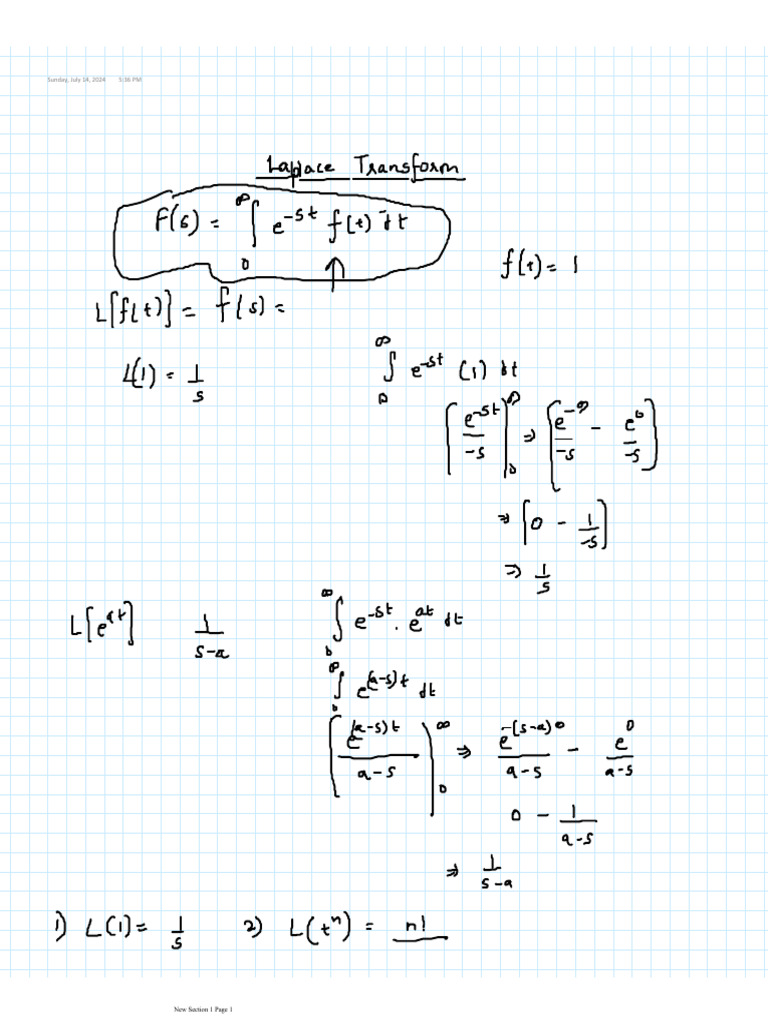 Sunday, July 14, 2024 5:36 PM
Laplace Transform
F(s) = ∫₀^∞ e^{-st} f(t) dt
f(t) = 1
L[f(t)] = f(s) =
L(1) = 1/s
∫₀^∞ e^{-st} (1) dt
[e^{-st}/-s]₀^∞ ⇒ [e^{-∞}/-s - e^0/-s]
⇒ [0 - 1/-s]
⇒ 1/s
L[e^{at}] 1/(s-a) ∫₀^∞ e^{-st} . e^{at} dt
∫₀^∞ e^{(a-s)t} dt
[e^{(a-s)t}/(a-s)]₀^∞ ⇒ e^{-(s-a)∞}/(a-s) - e^0/(a-s)
0 - 1/(a-s)
⇒ 1/(s-a)
1) L(1) = 1/s 2) L(t^n) = n!/
New Section 1 Page 1